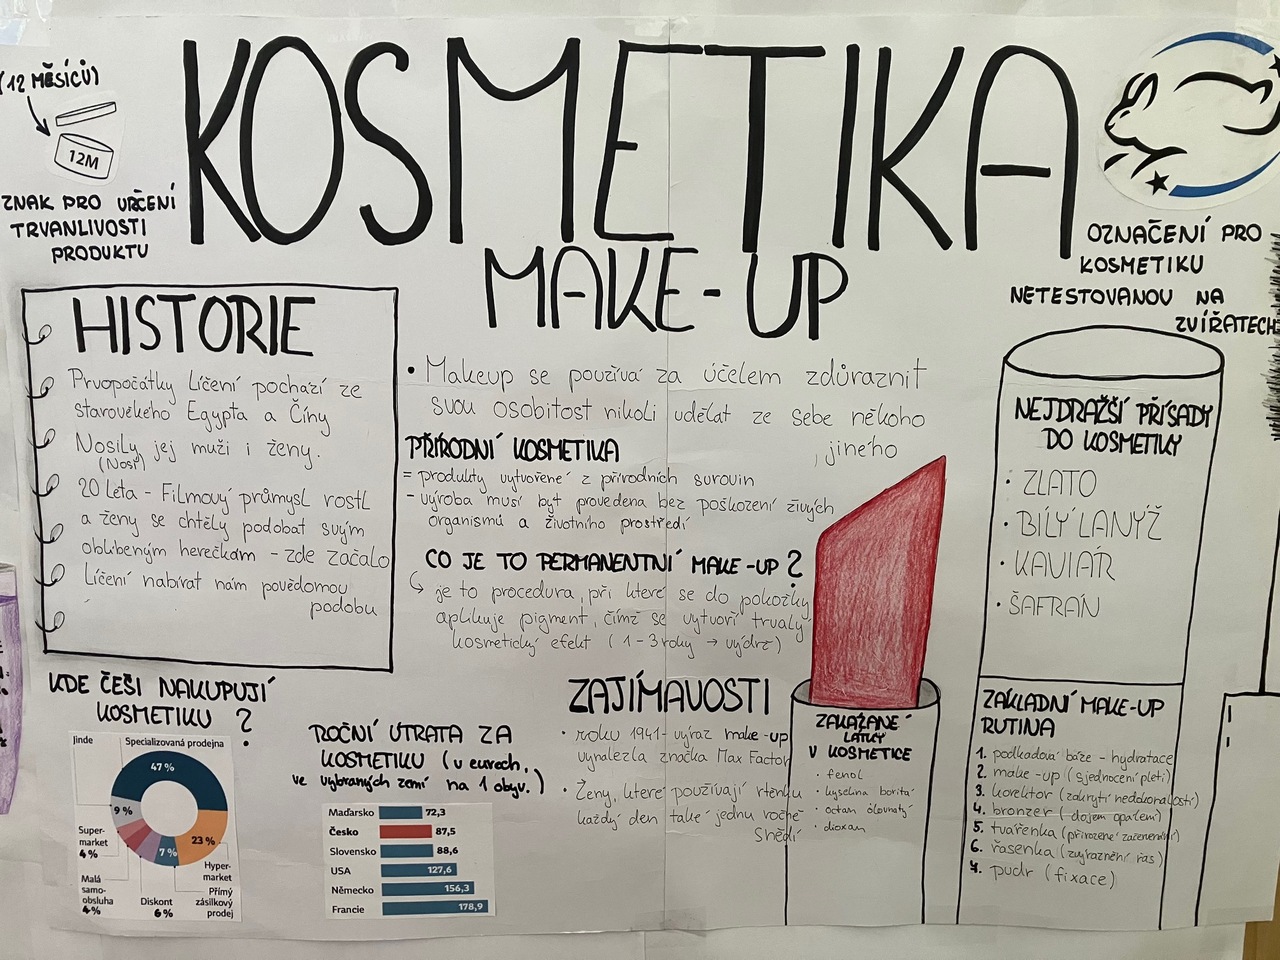 KOSMETIKA
MAKE-UP
(12 MĚSÍCŮ)
12M
ZNAK PRO URČENÍ
TRVANLIVOSTI
PRODUKTU
OZNAČENÍ PRO
KOSMETIKU
NETESTOVANOU NA
ZVÍŘATECH
HISTORIE
Prvopočátky líčení pochází ze
starověkého Egypta a Číny
Nosily jej muži i ženy.
(Nosí)
20 léta - Filmový průmysl rostl
a ženy se chtěly podobat svým
oblíbeným herečkám - zde začalo
líčení nabírat nám povědomou
podobu
• Makeup se používá za účelem zdůraznit
svou osobitost nikoli udělat ze sebe někoho
jiného
PŘÍRODNÍ KOSMETIKA
= produkty vytvořené z přírodních surovin
- výroba musí být provedena bez poškození živých
organismů a životního prostředí
CO JE TO PERMANENTNÍ MAKE-UP ?
je to procedura, při které se do pokožky
aplikuje pigment, čímž se vytvoří trvalý
kosmetický efekt (1-3 roky → výdrž)
NEJDRAŽŠÍ PŘÍSADY
DO KOSMETIKY
• ZLATO
• BÍLÝ LANÝŽ
• KAVIÁR
• ŠAFRÁN
KDE ČEŠI NAKUPUJÍ
KOSMETIKU ?
Jinde
Specializovaná prodejna
47 %
9 %
23 %
7 %
Super-
market
4 %
Malá
samo-
obsluha
4 %
Diskont
6 %
Hyper-
market
Přímý
zásilkový
prodej
ROČNÍ ÚTRATA ZA
KOSMETIKU (v eurech,
ve vybraných zemí na 1 obyv.)
Maďarsko 72,3
Česko 87,5
Slovensko 88,6
USA 127,6
Německo 156,3
Francie 178,9
ZAJÍMAVOSTI
• roku 1941 - výraz make-up
vynalezla značka Max Factor
• Ženy, které používají rtěnku
každý den také jednu ročně
snědí
ZAKÁZANÉ
LÁTKY
V KOSMETICE
• fenol
• kyselina boritá
• octan olovnatý
• dioxan
ZÁKLADNÍ MAKE-UP
RUTINA
1. podkladová báze - hydratace
2. make-up (sjednocení pleti)
3. korektor (zakrytí nedokonalostí)
4. bronzer (dojem opálení)
5. tvářenka (přirozené začervenání)
6. řasenka (zvýraznění řas)
7. pudr (fixace)